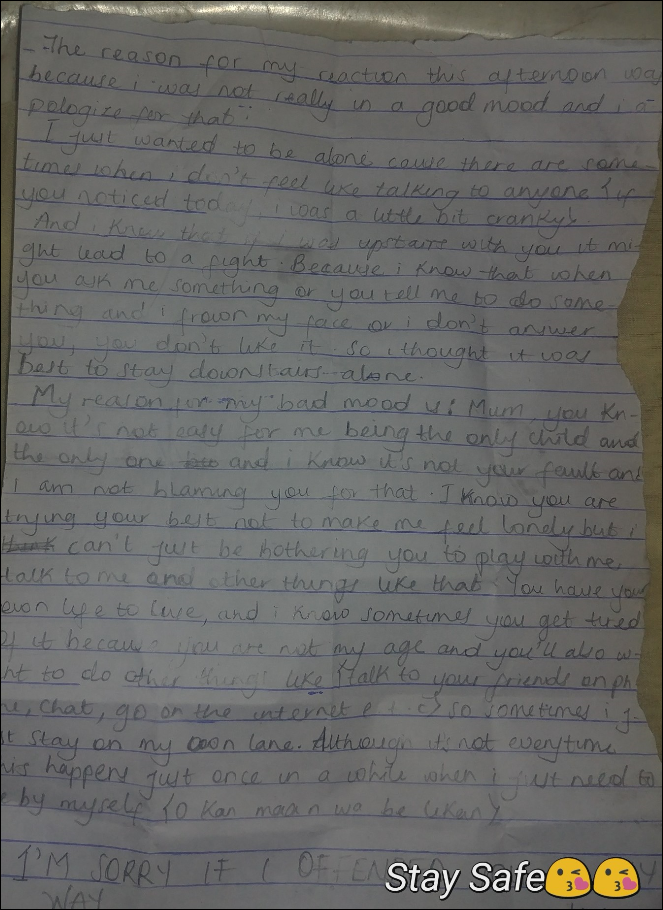 - The reason for my reaction this afternoon was
because i was not really in a good mood and i a-
pologize for that.
I just wanted to be alone cause there are some-
times when i didn't feel like talking to anyone {if
you noticed today, i was a little bit cranky}.
And i knew that if i was upstairs with you it mi-
ght lead to a fight. Because i know that when
you ask me something or you tell me to do some-
thing and i frown my face or i don't answer
you, you don't like it. so i thought it was
best to stay downstairs alone.
My reason for my bad mood is: Mum, you kn-
ow it's not easy for me being the only child and
the only one and i know it's not your fault and
i am not blaming you for that. I know you are
trying your best not to make me feel lonely but i
think can't just be bothering you to play with me,
talk to me and other things like that. You have your
own life to live, and i know sometimes you get tired
of it because you are not my age and you'll also w-
nt to do other things like {talk to your friends on ph
ne, chat, go on the internet e.t.c} so sometimes i j-
st stay on my own lane. Although it's not everytime
this happens just once in a while when i just need to
e by myself {O kan maa n wa be likan}
I'M SORRY IF I OFFENDED
WAY
Stay Safe😘😘